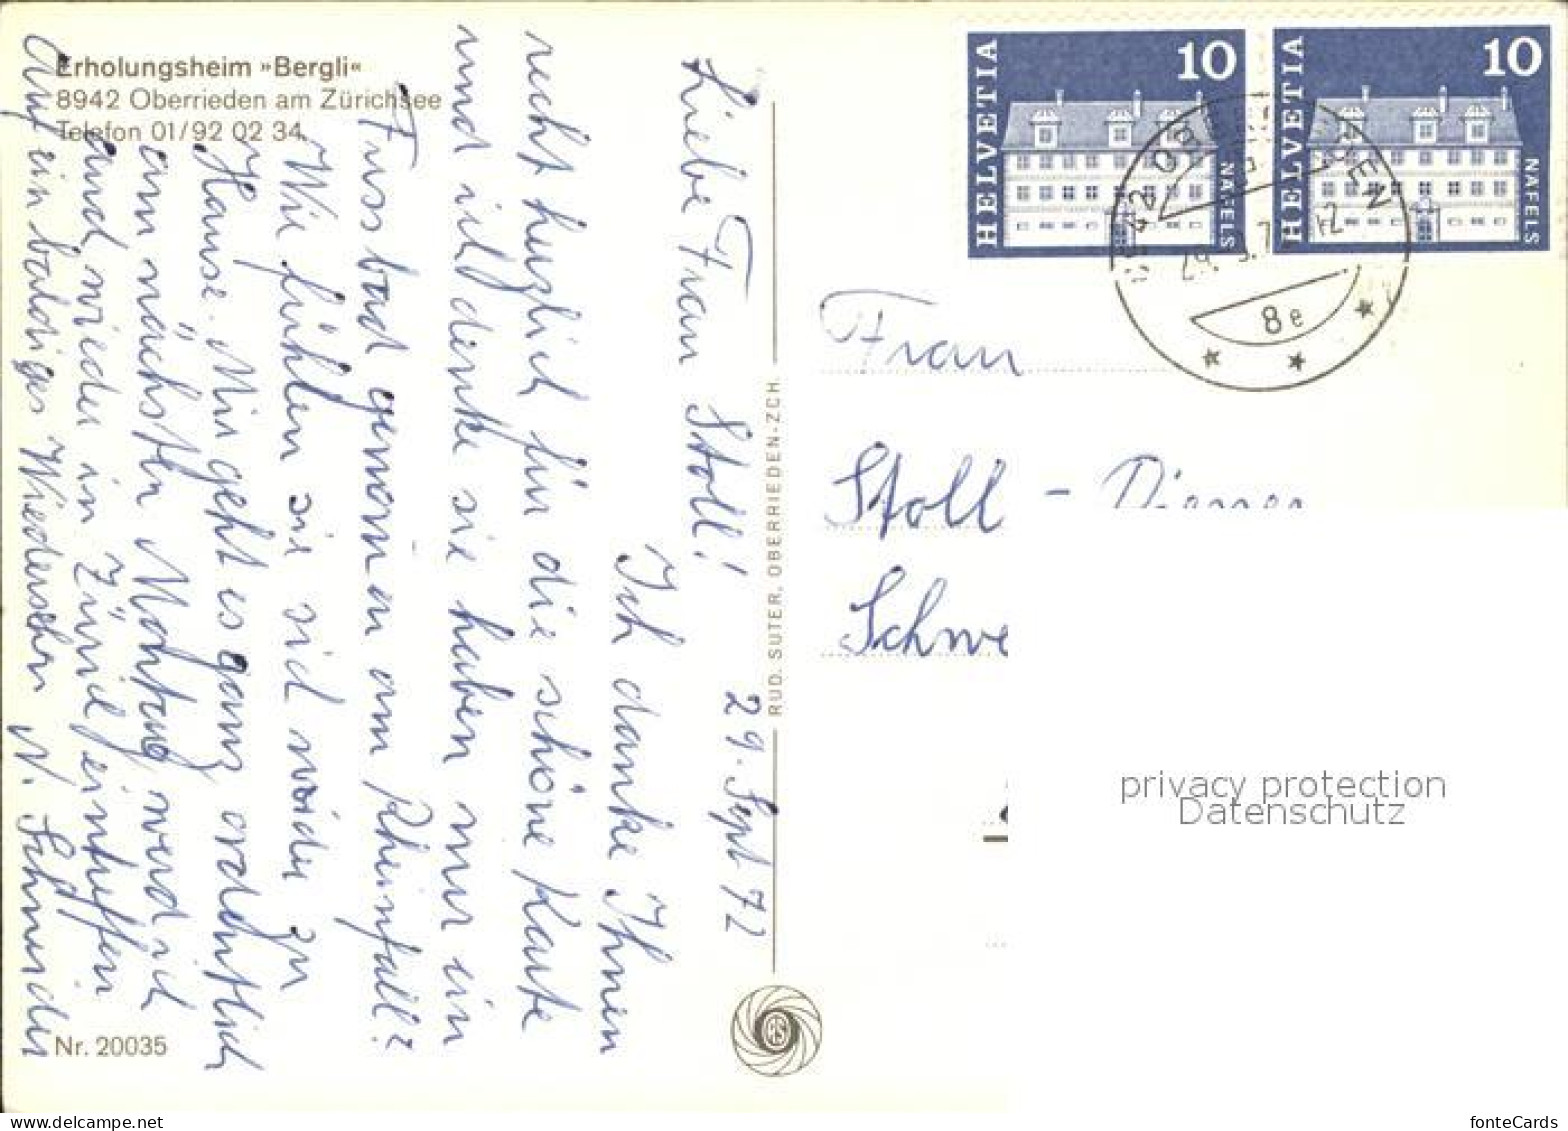 Erholungsheim »Bergli«
8942 Oberrieden am Zürichsee
Telefon 01/92 02 34
29. Sept 72
Liebe Frau Stoll!
Ich danke Ihnen
recht herzlich für die schöne Karte
und ich denke sie haben nur ein
Fussbad genommen am Rheinfall?
Wie fühlen sie sich wieder zu
Hause. Mir geht es ganz ordentlich
am nächsten Montag werd ich
und wieder in Zürich eintreffen
Auf ein baldiges Wiedersehen N. Schneider
Nr. 20035
RUD. SUTER, OBERRIEDEN-ZCH.
HELVETIA 10 NÄFELS
HELVETIA 10 NÄFELS
8e
Frau
Stoll - Diener
Schwe
privacy protection
Datenschutz
www.delcampe.net
fonteCards